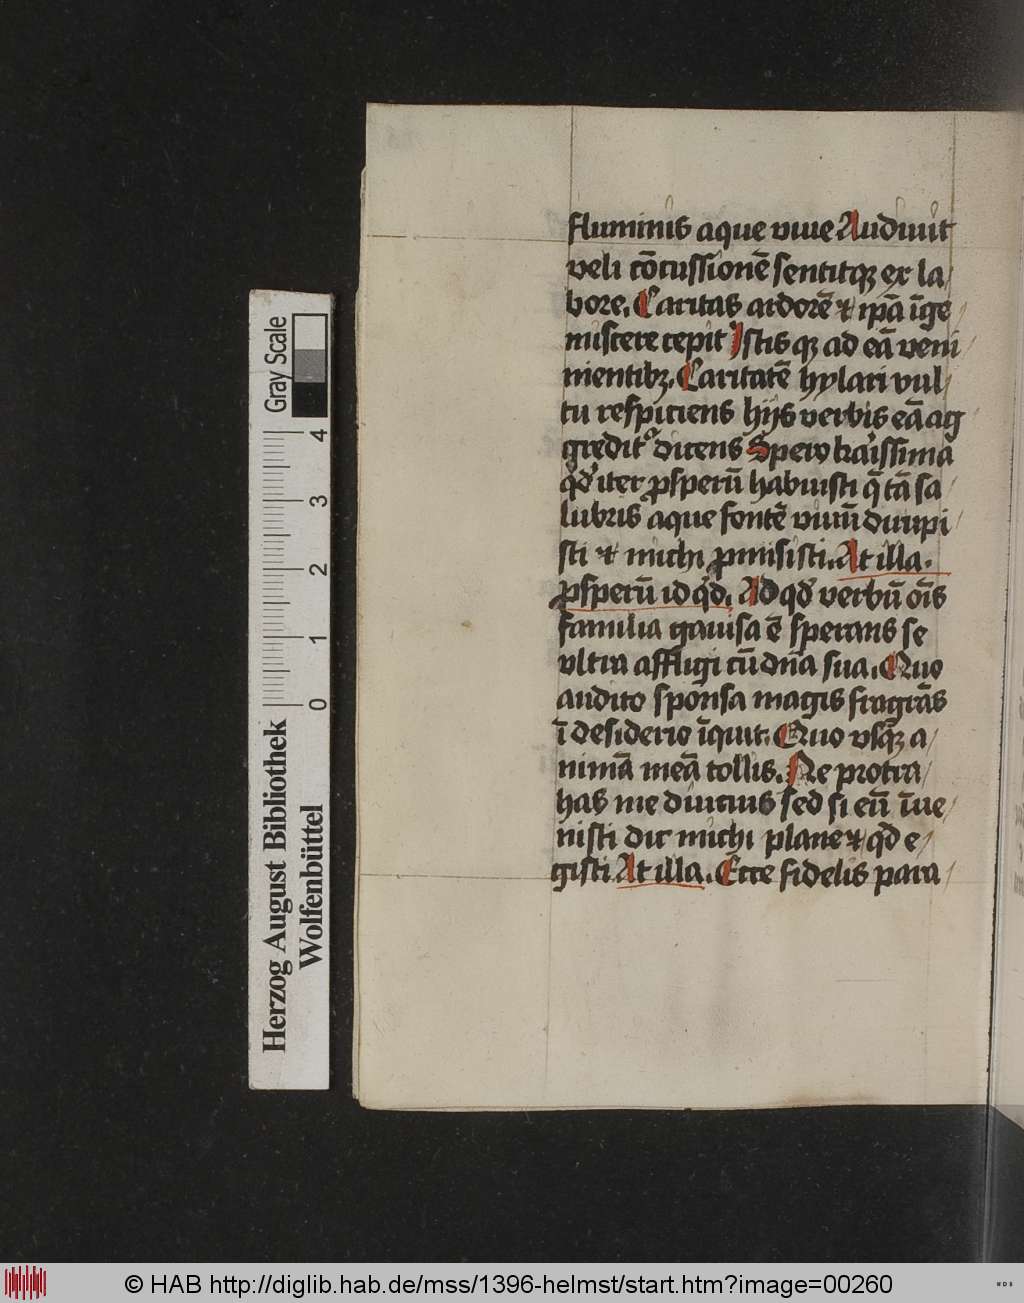 fluminis aque viue Audiuit
veli cōcussionē sentitqꝫ ex la/
bore. Caritas ardorē ⁊ ip̄a īge/
miscere cepit Istis qꝫ ad eā veni/
nientibꝫ. Caritatē hylari vul/
tu respiciens hijs verbis eā ag
gredit᷒ dicens Spero kar̄issima
qd̓ iter ꝓsperū habuisti q̄ tā sa/
lubris aque fontē viuū duupi/
sti ⁊ michi ꝓmisisti. At illa.
ꝓsperū id qd̓. Ad qd̓ verbū oīs
familia gauisa ē sperans se
vltra affligi cū dn̄a sua. Quo
audito sponsa magis fragrās
ī desiderio īquit. Quo vsqꝫ a/
nimā meā tollis. Ne protra/
has me diucius sed si eū īue/
nisti dic michi plane ⁊ qd̓ e/
gisti At illa. Ecce fidelis para/
Herzog August Bibliothek
Wolfenbüttel
Gray Scale
0 1 2 3 4
© HAB http://diglib.hab.de/mss/1396-helmst/start.htm?image=00260
WDB